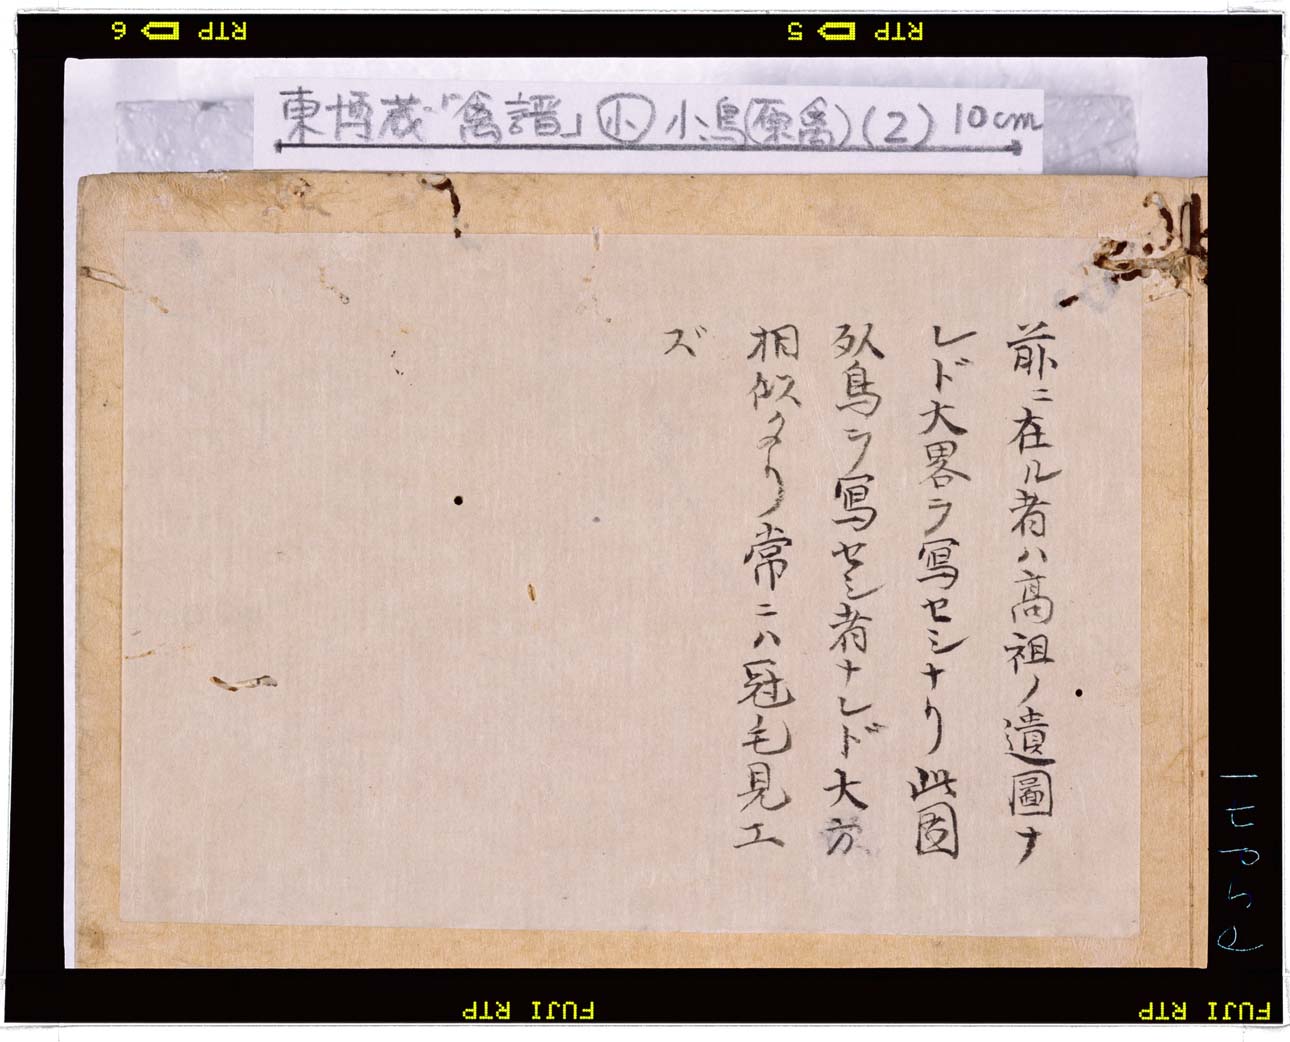 RTP 6
RTP 5
東博蔵「禽譜」㋛小鳥(原禽)(2) 10cm
前ニ在ル者ハ高祖ノ遺圖ナ
レド大畧ヲ寫セシナリ 此図
死鳥ヲ写セシ者ナレド大方
相似タリ常ニハ冠毛見エ
ズ
FUJI RTP
FUJI RTP